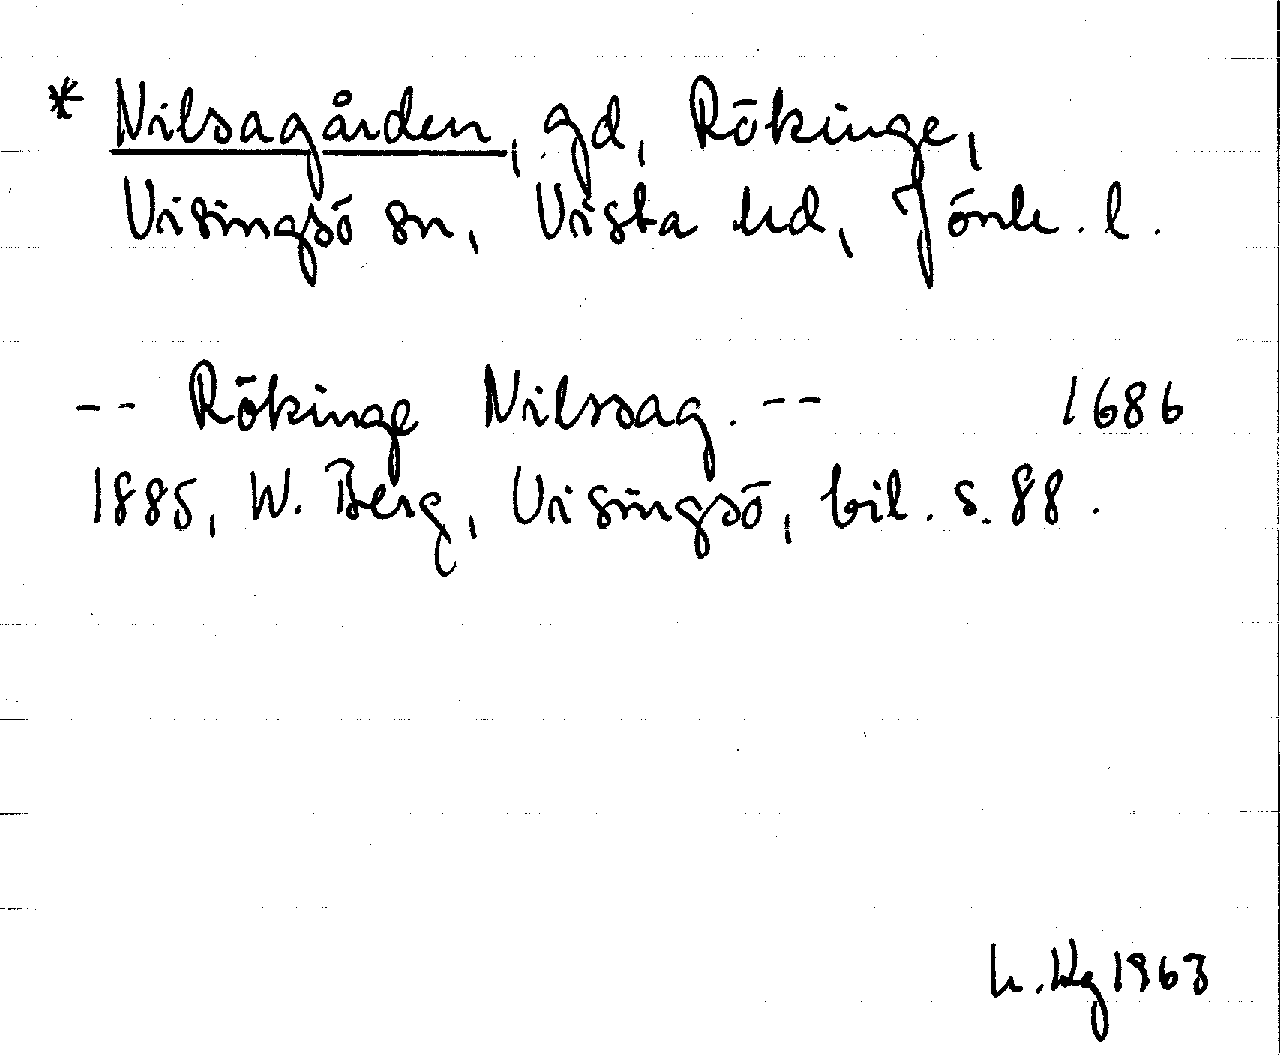 * Nilsagården, gd, Rökinge,
Visingsö sn, Vista hd, Jönk. l.
-- Rökinge Nilssag. -- 1686
1885, W. Berg, Visingsö, bil. s. 88.
1963